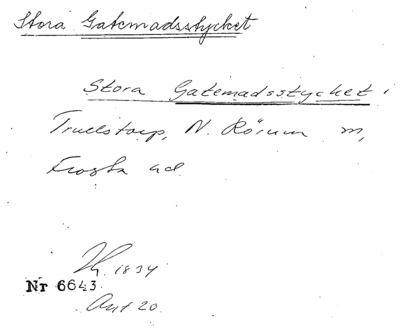 Stora Gatemadsstycket
Stora Gatemadsstycket i
Truelstorp, N. Rörum m,
Frosta hd.
1834
Nr 6643
Akt 20.